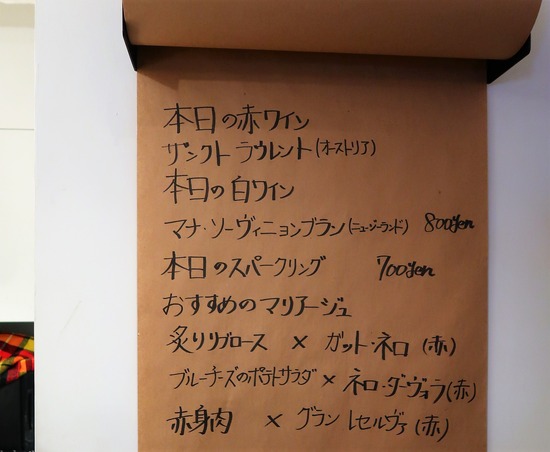 本日の赤ワイン
ザンクト ラウレント(オーストリア)
本日の白ワイン
マナ・ソーヴィニョンブラン(ニュージーランド) 800yen
本日のスパークリング 700yen
おすすめのマリアージュ
炙りリブロース × ガット・ネロ (赤)
ブルーチーズのポテトサラダ × ネロ・ダーヴォラ(赤)
赤身肉 × グラン レセルヴァ (赤)